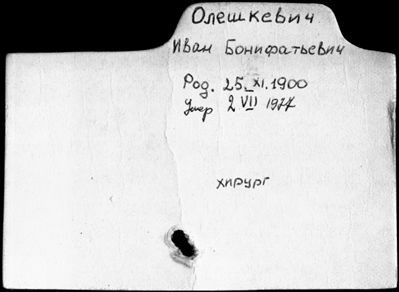 Олешкевич
Иван Бонифатьевич
Род. 25.XI.1900
Умер 2 VII 1977
хирург